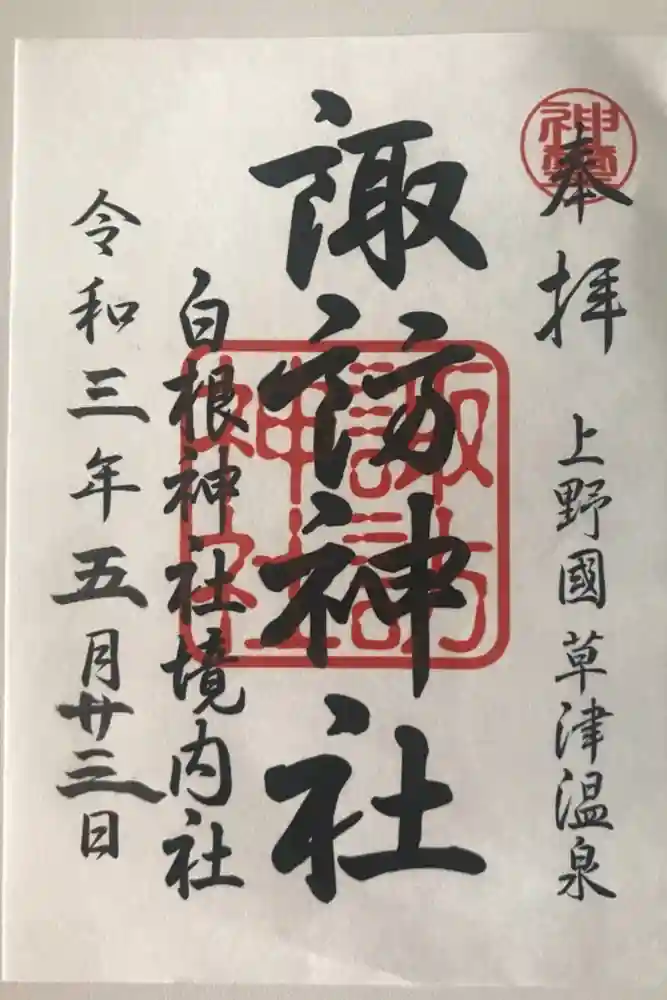 奉拝
上野國草津温泉
諏訪神社
諏訪
神社
白根神社境内社
令和三年五月廿三日